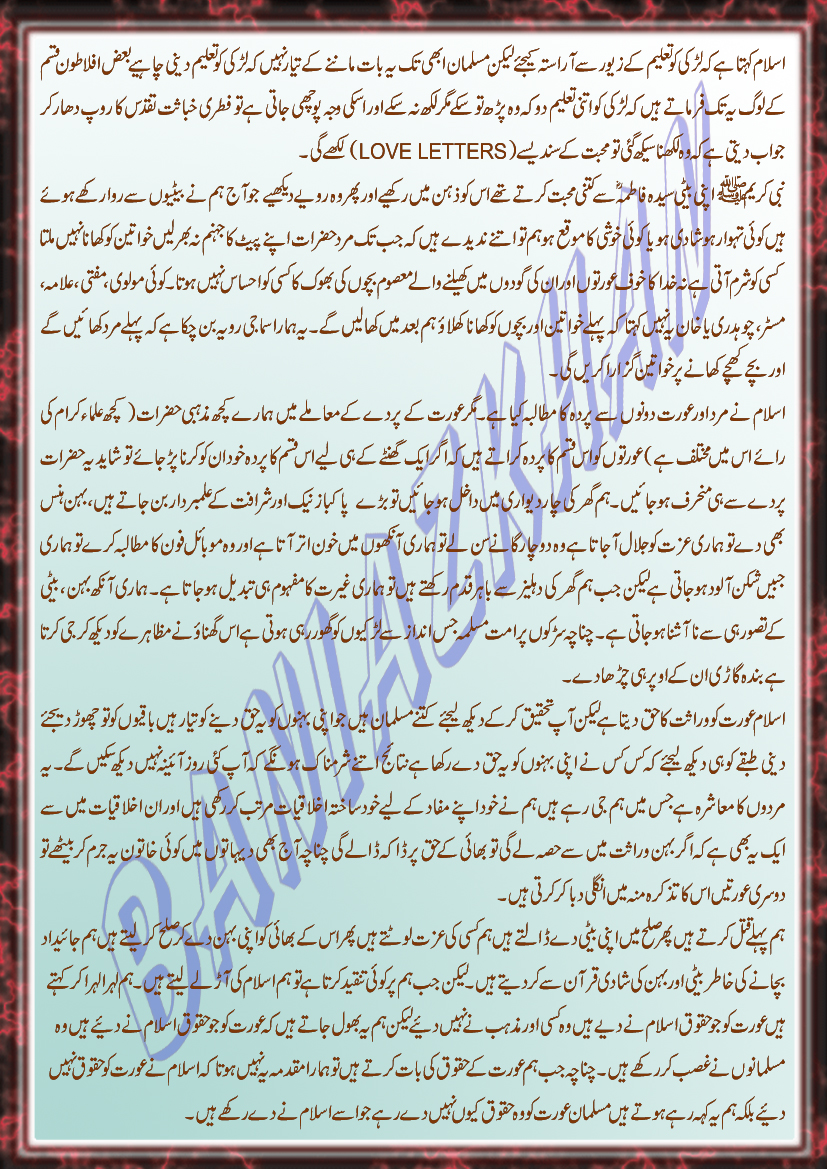 اسلام کہتا ہے کہ لڑکی کو تعلیم کے زیور سے آراستہ کیجئے لیکن مسلمان ابھی تک یہ بات ماننے کے تیار نہیں کہ لڑکی کو تعلیم دینی چاہیے بعض افلاطون قسم
کے لوگ یہ تک فرماتے ہیں کہ لڑکی کو اتنی تعلیم دو کہ وہ پڑھ تو سکے مگر لکھ نہ سکے اور اسکی وجہ پوچھی جاتی ہے تو فطری خباثت تقدس کا روپ دھار کر
جواب دیتی ہے کہ وہ لکھنا سیکھ گئی تو محبت کے سندیسے (LOVE LETTERS) لکھے گی ۔
نبی کریم ﷺ اپنی بیٹی سیدہ فاطمہؓ سے کتنی محبت کرتے تھے اس کو ذہن میں رکھیے اور پھر وہ رویے دیکھیے جو آج ہم نے بیٹیوں سے روا رکھے ہوئے
ہیں کوئی تہوار ہو شادی ہو یا کوئی خوشی کا موقع ہو ہم تو اتنے ندیدے ہیں کہ جب تک مرد حضرات اپنے پیٹ کا جہنم نہ بھر لیں خواتین کو کھانا نہیں ملتا
کسی کو شرم آتی ہے نہ خدا کا خوف عورتوں اور ان کی گودوں میں کھیلنے والے معصوم بچوں کی بھوک کا کسی کو احساس نہیں ہوتا۔ کوئی مولوی، مفتی، علامہ،
مسٹر، چوہدری یا خان یہ نہیں کہتا کہ پہلے خواتین اور بچوں کو کھانا کھلاؤ ہم بعد میں کھا لیں گے ۔ یہ ہمارا سماجی رویہ بن چکا ہے کہ پہلے مرد کھائیں گے
اور بچے کھچے کھانے پر خواتین گزارا کریں گی ۔
اسلام نے مرد اور عورت دونوں سے پردہ کا مطالبہ کیا ہے ۔ مگر عورت کے پردے کے معاملے میں ہمارے کچھ مذہبی حضرات ( کچھ علماء کرام کی
رائے اس میں مختلف ہے ) عورتوں کو اس قسم کا پردہ کراتے ہیں کہ اگر ایک گھنٹے کے ہی لیے اس قسم کا پردہ خود ان کو کرنا پڑ جائے تو شاید یہ حضرات
پردے سے ہی منحرف ہو جائیں ۔ ہم گھر کی چار دیواری میں داخل ہو جائیں تو بڑے پاکباز نیک اور شرافت کے علمبردار بن جاتے ہیں ، بہن ہنس
بھی دے تو ہماری عزت کو جلال آجاتا ہے وہ دو چار گانے سن لے تو ہماری آنکھوں میں خون اتر آتا ہے اور وہ موبائل فون کا مطالبہ کرے تو ہماری
جبیں شکن آلود ہو جاتی ہے لیکن جب ہم گھر کی دہلیز سے باہر قدم رکھتے ہیں تو ہماری غیرت کا مفہوم ہی تبدیل ہو جاتا ہے ۔ ہماری آنکھ بہن ، بیٹی
کے تصور ہی سے نا آشنا ہو جاتی ہے ۔ چنانچہ سڑکوں پر امت مسلمہ جس انداز سے لڑکیوں کو گھور رہی ہوتی ہے اس گھناؤنے مظاہرے کو دیکھ کر جی کرتا
ہے بندہ گاڑی ان کے اوپر ہی چڑھا دے ۔
اسلام عورت کو وراثت کا حق دیتا ہے لیکن آپ تحقیق کر کے دیکھ لیجئے کتنے مسلمان ہیں جو اپنی بہنوں کو یہ حق دینے کو تیار ہیں باقیوں کو تو چھوڑ دیجئے
دینی طبقے کو ہی دیکھ لیجئے کہ کس کس نے اپنی بہنوں کو یہ حق دے رکھا ہے نتائج اتنے شرمناک ہونگے کہ آپ کئی روز آئینہ نہیں دیکھ سکیں گے ۔ یہ
مردوں کا معاشرہ ہے جس میں ہم جی رہے ہیں ہم نے خود اپنے مفاد کے لیے خود ساختہ اخلاقیات مرتب کر رکھی ہیں اور ان اخلاقیات میں سے
ایک یہ بھی ہے کہ اگر بہن وراثت میں سے حصہ لے گی تو بھائی کے حق پر ڈاکہ ڈالے گی چنانچہ آج بھی دیہاتوں میں کوئی خاتون یہ جرم کر بیٹھے تو
دوسری عورتیں اس کا تذکرہ منہ میں انگلی دبا کر کرتی ہیں ۔
ہم پہلے قتل کرتے ہیں پھر صلح میں اپنی بیٹی دے ڈالتے ہیں ہم کسی کی عزت لوٹتے ہیں پھر اس کے بھائی کو اپنی بہن دے کر صلح کر لیتے ہیں ہم جائیداد
بچانے کی خاطر بیٹی اور بہن کی شادی قرآن سے کر دیتے ہیں ۔ لیکن جب ہم پر کوئی تنقید کرتا ہے تو ہم اسلام کی آڑ لے لیتے ہیں ۔ ہم لہرا لہرا کر کہتے
ہیں عورت کو جو حقوق اسلام نے دیے ہیں وہ کسی اور مذہب نے نہیں دئیے لیکن ہم یہ بھول جاتے ہیں کہ عورت کو جو حقوق اسلام نے دئیے ہیں وہ
مسلمانوں نے غصب کر رکھے ہیں ۔ چنانچہ جب ہم عورت کے حقوق کی بات کرتے ہیں تو ہمارا مقدمہ یہ نہیں ہوتا کہ اسلام نے عورت کو حقوق نہیں
دئیے بلکہ ہم یہ کہہ رہے ہوتے ہیں مسلمان عورت کو وہ حقوق کیوں نہیں دے رہے جو اسے اسلام نے دے رکھے ہیں ۔
BANIAZKHAN